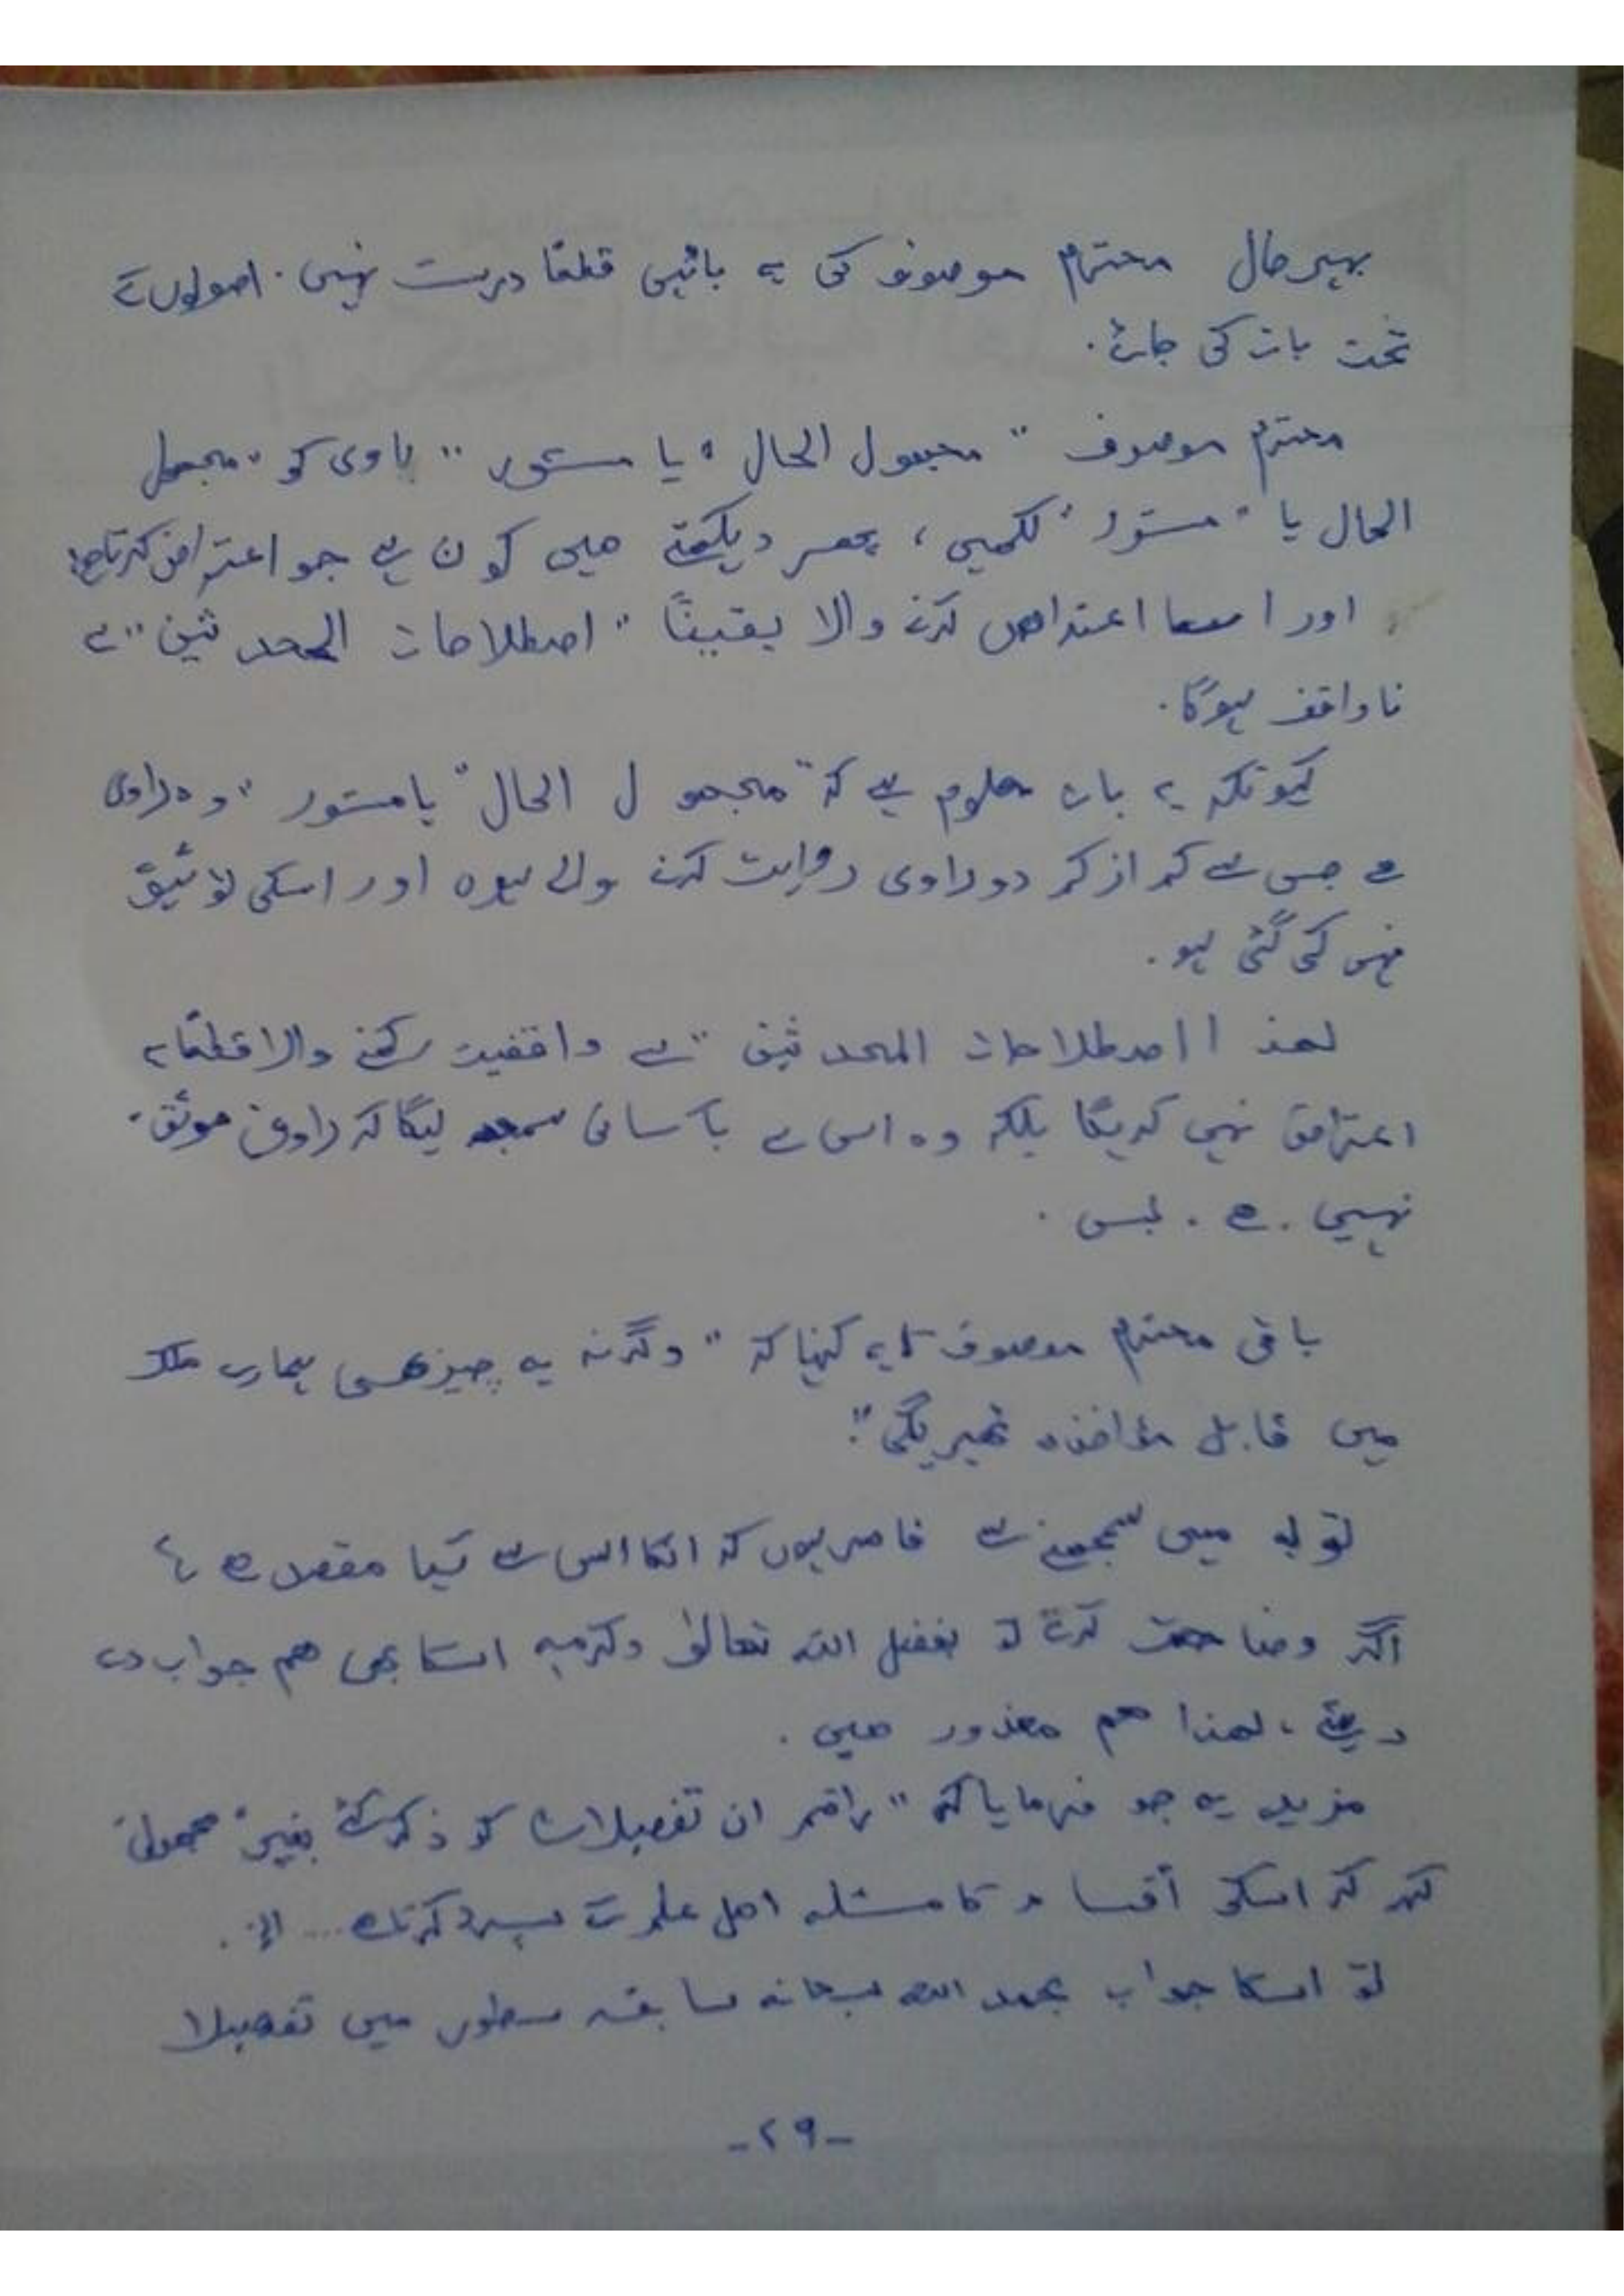 بہرحال محترم موصوف کی یہ باتیں قطعًا درست نہیں۔ اصولوں کے
تحت بات کی جائے۔
محترم موصوف " مجہول الحال " یا مستور " راوی کو " مجہول
الحال یا " مستور " لکھیں ، پھر دیکھتے ہیں کون ہے جو اعتراض کرتا ہے؟
اور ایسا اعتراض کرنے والا یقینًا " اصطلاحات المحدثین " سے
ناواقف ہوگا۔
کیونکہ یہ بات معلوم ہے کہ " مجہول الحال " یا مستور " وہ راوی
ہے جس سے کم از کم دو راوی روایت کرنے والے ہوں اور اسکی توثیق
نہیں کی گئی ہو۔
لھذا اصطلاحات المحدثین " سے واقفیت رکھنے والا قطعًا یہ
اعتراض نہیں کریگا بلکہ وہ اس سے بآسانی سمجھ لیگا کہ راوی موثق
نہیں ۔ ہے ۔ بس ۔
باقی محترم موصوف کا یہ کہنا کہ " وگرنہ یہ چیز ھی ہمارے ملک
میں قابل مؤاخذہ ٹھیریگی"۔
تو یہ میں سمجھنے سے قاصر ہوں کہ انکا اس سے کیا مقصد ہے ؟
اگر وضاحت کرتے تو بفضل اللہ تعالیٰ وکرمہ اسکا بھی ھم جواب دے
دیتے ، لھذا ھم معذور ھیں ۔
مزید یہ جو فرمایا کہ " راقم ان تفصیلات کو ذکر کئے بغیر " مجہول
کہہ کر اسکی أقسام کا مسئلہ اھل علم کے سپرد کرتا ہے ... الخ ۔
تو اسکا جواب بحمد اللہ سبحانہ سابقہ سطور میں تفصیلا
-۲۹-